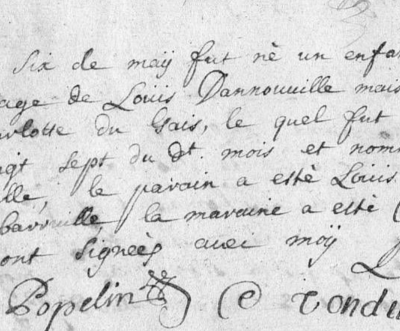 six de maÿ fut nè un enfan
age de Loüis Dannouville mais
arlotte du Gais, le quel fut
ngt sept du dt. mois et nomm
ille, le parain a estè Louis
barville, la maraine a esté
ont signeès avec moÿ
Popelin C Tondu